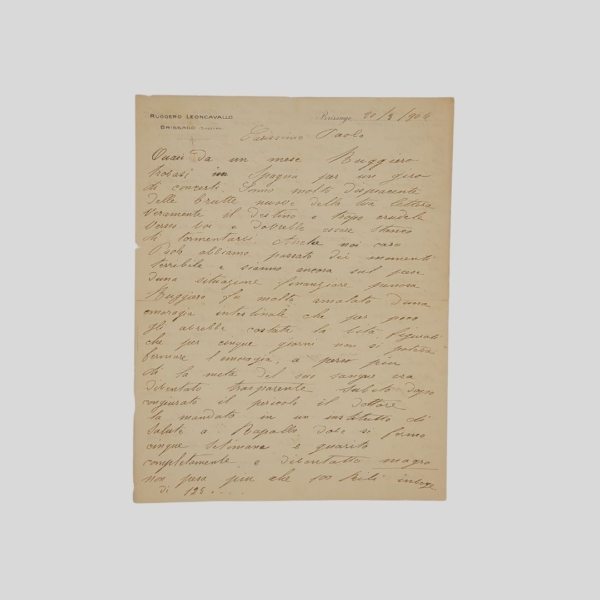 RUGGERO LEONCAVALLO
BRISSAGO
Carissimo Paolo
Quasi da un mese Ruggero
trovasi in Spagna per un giro
di concerti. Sono molto dispiacente
delle brutte nuove della tua lettera
Veramente il destino e tropo crudele
verso voi e dovrebbe essere stanco
di tormentarti. Anche noi caro
abbiamo passato dei momenti
terribile e siamo ancora sul
d'una situazione
Ruggero fu molto amalato d'una
emoragia intestinale che per poco
gli avrebbe costato la vita. Figurati
che per cinque giorni non si poteva
fermare l'emoragia, a perso piu
di la metta del suo sangue era
diventato trasparente. Subito dopo
congiurato il pericolo il dottore
la mandato in un instituto di
salute a Rapallo dove si fermo
cinque settimane e guarito
completamente e diventatto magro
non pesa piu che 100 kili invece
di 125 . . . .